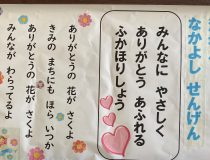 なかよし せんげん
みんなに やさしく
ありがとう あふれる
ふかほりしょう
ありがとうの 花が さくよ
きみの まちにも ほら いつか
ありがとうの 花が さくよ
みんなが わらってるよ